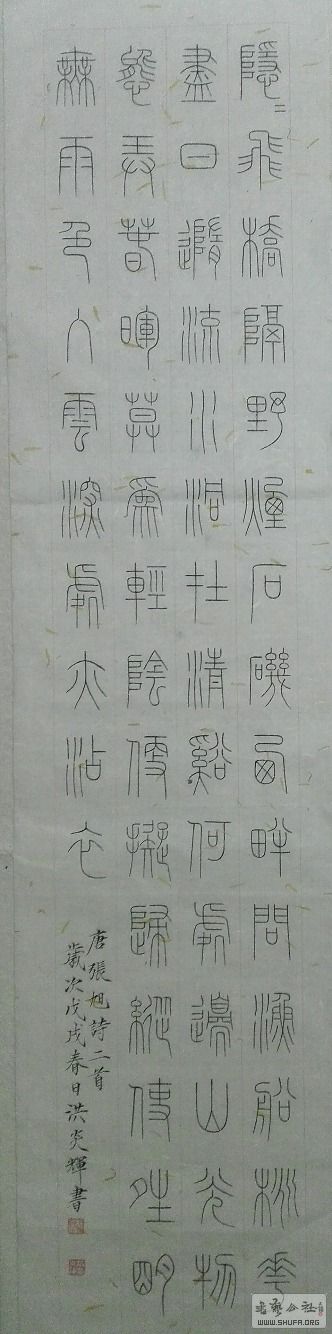 隱々飛橋隔野煙石磯西畔問漁船桃花
盡日隨流水洞在清谿何處邊山光物
態弄春暉莫為輕陰便擬歸縱使晴明
無雨色入雲深處亦沾衣
唐張旭詩二首
歲次戊戌春日洪炎輝書
書藝公社
WWW.SHUFA.ORG